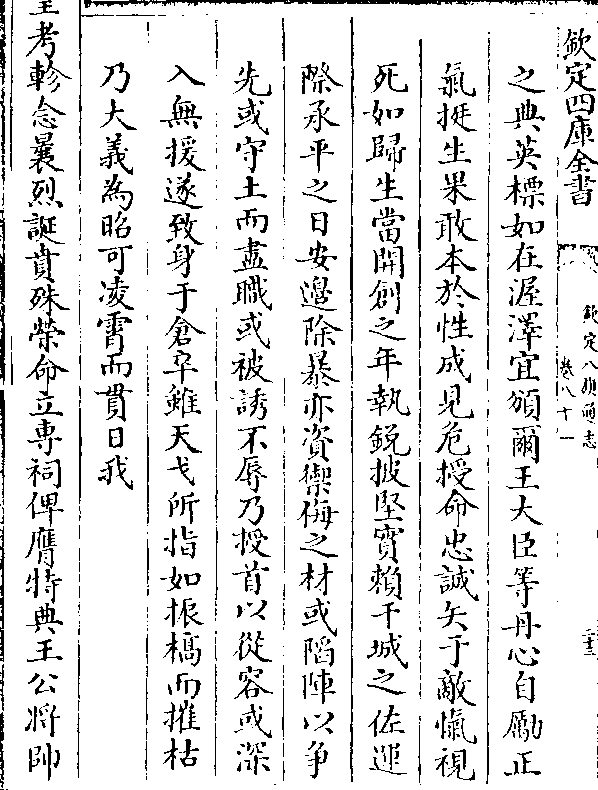 欽定四庫全書
欽定八旗通志
卷八十一
二十三
之典英標如在渥澤宜頒爾王大臣等丹心自勵正
氣挺生果敢本於性成見危授命忠誠矢于敵愾視
死如歸生當開創之年執銳披堅實賴干城之佐運
際承平之日安邊除暴亦資禦侮之材或陷陣以爭
先或守土而盡職或被誘不辱乃授首以從容或深
入無援遂致身于倉卒雖天戈所指如振槁而摧枯
乃大義為昭可凌霄而貫日我
皇考軫念曩烈誕賁殊榮命立專祠俾膺特典王公將帥